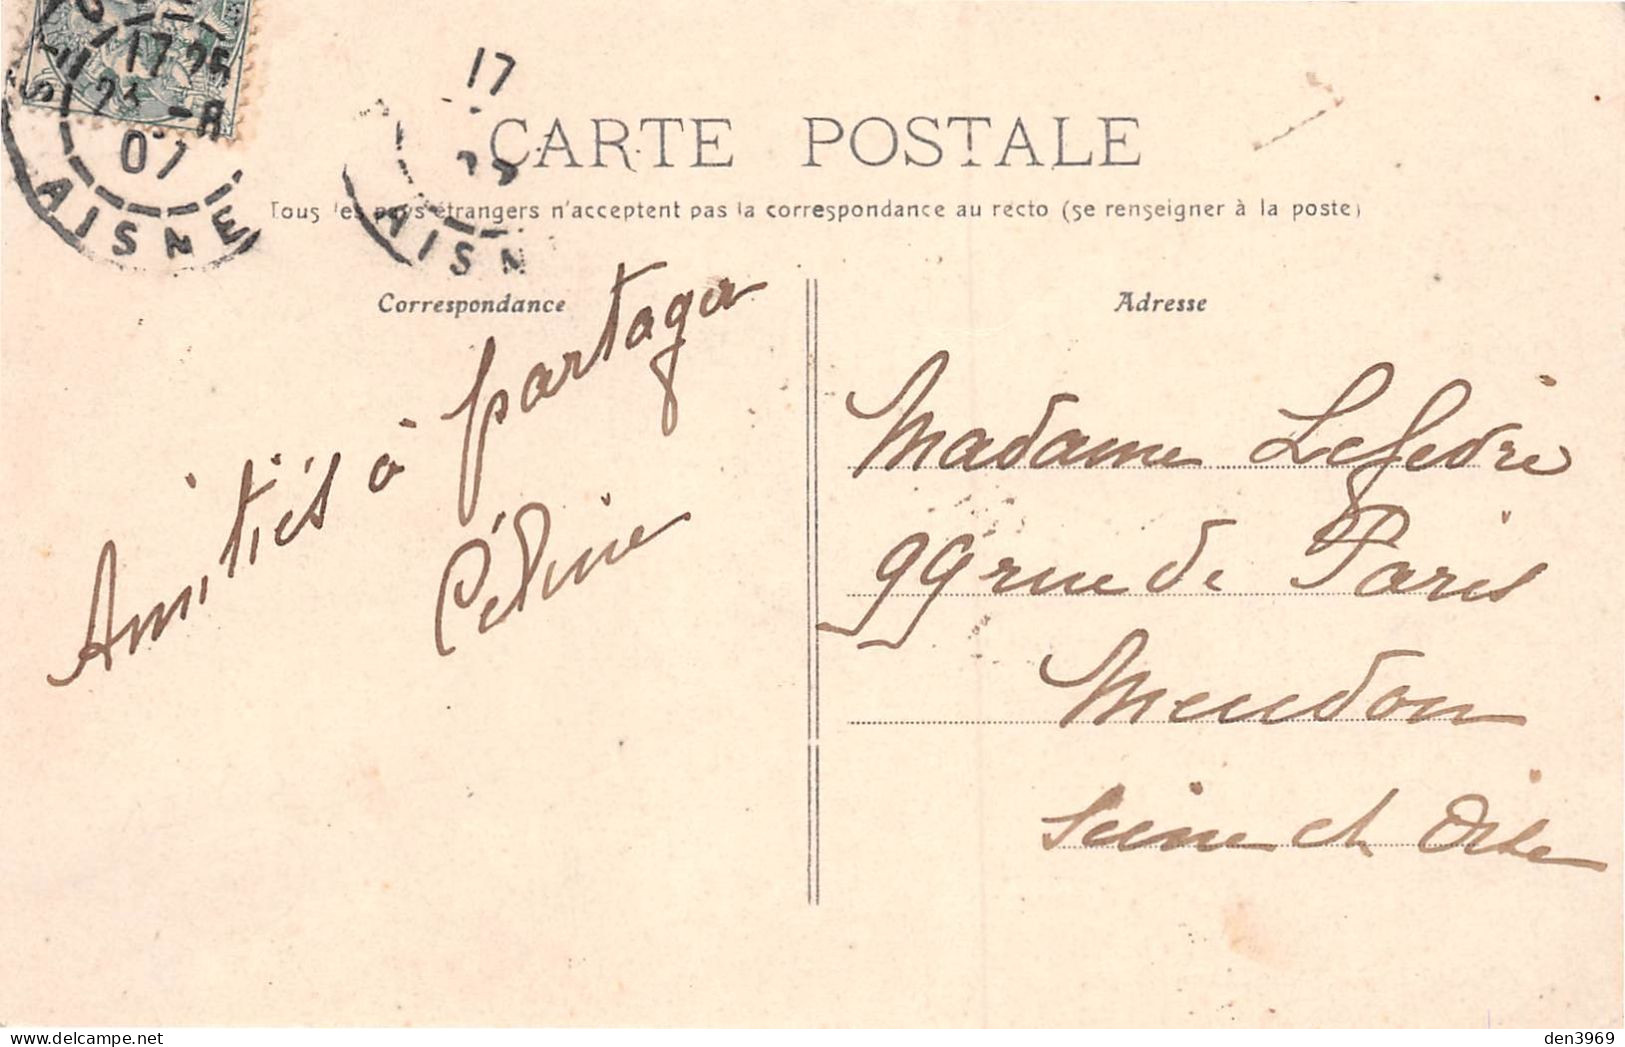 17 25
23 -8
07
AISNE
17
AISN
CARTE POSTALE
Tous les pays étrangers n'acceptent pas la correspondance au recto (se renseigner à la poste)
Correspondance
Amitiés à partager
Céline
Adresse
Madame Lefedre
99 rue de Paris
Meudon
Seine et Oise
den3969